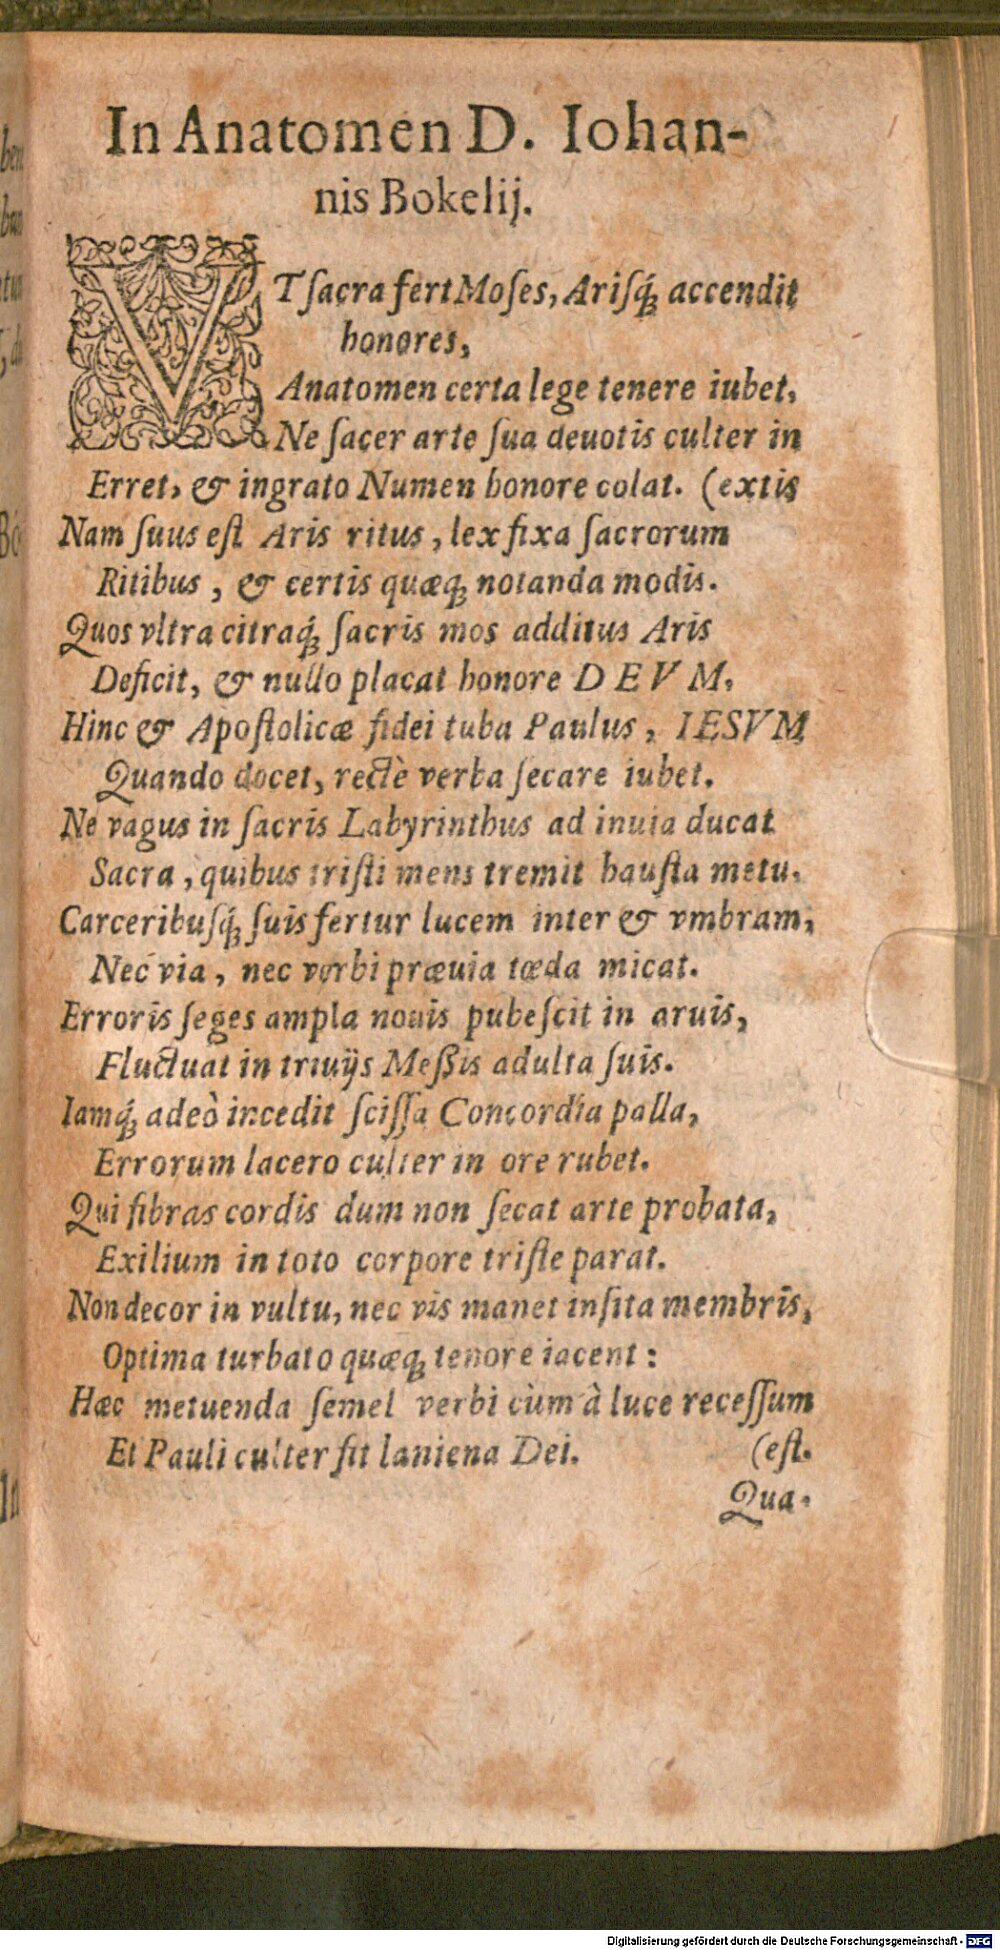 In Anatomen D. Iohan-
nis Bokelij.
VT ſacra fert Moſes, Ariſq́; accendit
honores,
Anatomen certa lege tenere iubet,
Ne ſacer arte ſua deuotis culter in
Erret, & ingrato Numen honore colat. (extis
Nam ſuus eſt Aris ritus, lex fixa ſacrorum
Ritibus, & certis quæq; notanda modis.
Quos vltra citraq́; ſacris mos additus Aris
Deficit, & nullo placat honore DEVM,
Hinc & Apoſtolicæ fidei tuba Paulus, IESVM
Quando docet, rectè verba ſecare iubet.
Ne vagus in ſacris Labyrinthus ad inuia ducat
Sacra, quibus triſti mens tremit hauſta metu.
Carceribuſq́; ſuis fertur lucem inter & vmbram,
Nec via, nec verbi præuia tæda micat.
Erroris ſeges ampla nouis pubeſcit in aruis,
Fluctuat in triuijs Meßis adulta ſuis.
Iamq́; adeò incedit ſciſſa Concordia palla,
Errorum lacero culter in ore rubet.
Qui fibras cordis dum non ſecat arte probata,
Exilium in toto corpore triſte parat.
Non decor in vultu, nec vis manet inſita membris,
Optima turbato quæq; tenore iacent:
Hæc metuenda ſemel verbi cùm à luce receſſum
Et Pauli culter fit laniena Dei. (eſt.
Qua-
Digitalisierung gefördert durch die Deutsche Forschungsgemeinschaft - DFG